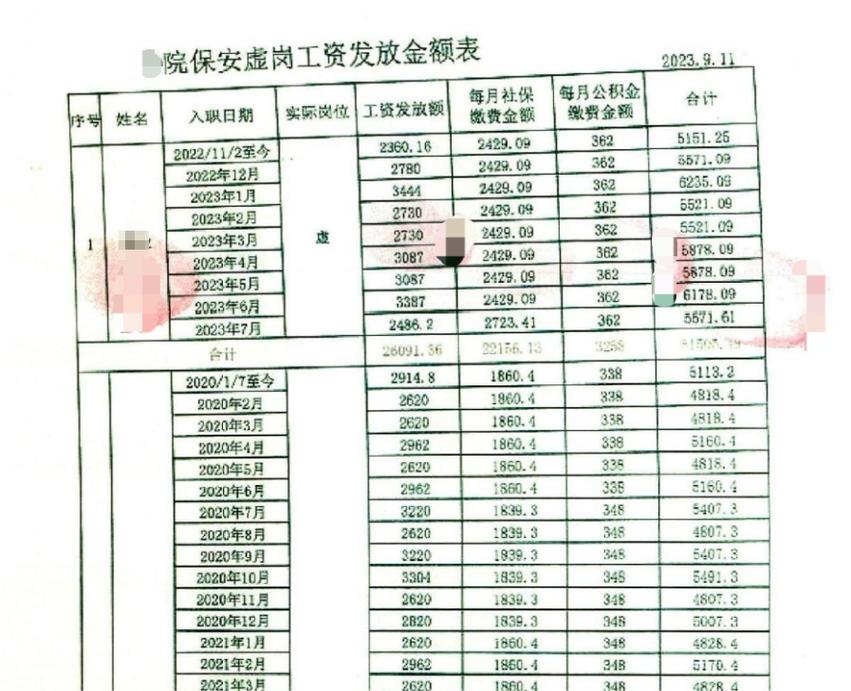 院保安虚岗工资发放金额表
2023.9.11
序号 姓名 入职日期 实际岗位 工资发放额 每月社保缴费金额 每月公积金缴费金额 合计
1 虚
2022/11/2至今 2360.16 2429.09 362 5151.25
2022年12月 2780 2429.09 362 5571.09
2023年1月 3444 2429.09 362 6235.09
2023年2月 2730 2429.09 362 5521.09
2023年3月 2730 2429.09 362 5521.09
2023年4月 3087 2429.09 362 5878.09
2023年5月 3087 2429.09 362 5878.09
2023年6月 3387 2429.09 362 6178.09
2023年7月 2486.2 2723.41 362 5571.61
合计 26091.36 22156.13 3258
2020/1/7至今 2914.8 1860.4 338 5113.2
2020年2月 2620 1860.4 338 4818.4
2020年3月 2620 1860.4 338 4818.4
2020年4月 2962 1860.4 338 5160.4
2020年5月 2620 1860.4 338 4818.4
2020年6月 2962 1860.4 338 5160.4
2020年7月 3220 1839.3 348 5407.3
2020年8月 2620 1839.3 348 4807.3
2020年9月 3220 1839.3 348 5407.3
2020年10月 3304 1839.3 348 5491.3
2020年11月 2620 1839.3 348 4807.3
2020年12月 2820 1839.3 348 5007.3
2021年1月 2620 1860.4 348 4828.4
2021年2月 2962 1860.4 348 5170.4
2021年3月 2620 1860.4 348 4828.4